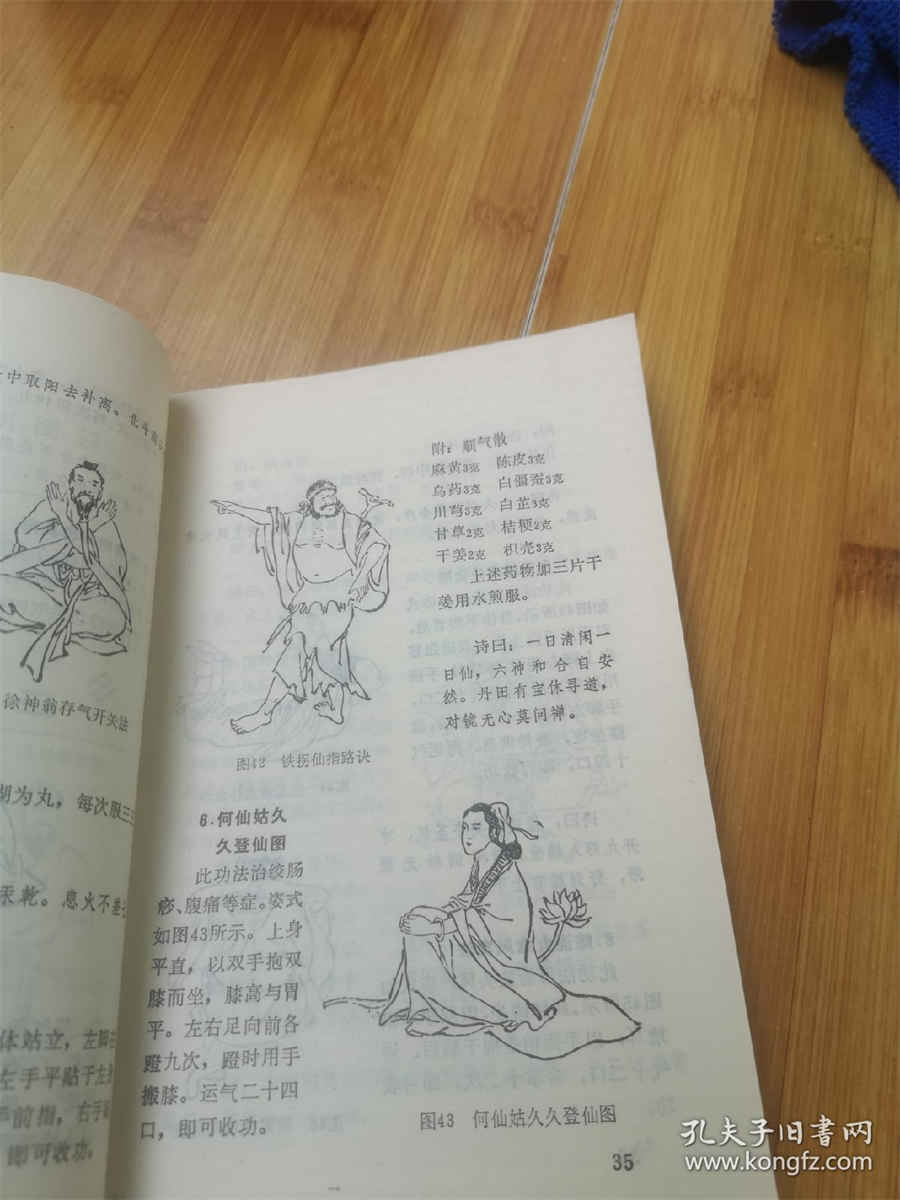 中取阳去补离。北斗
徐神翁存气开关法
胡为丸，每次服三
汞乾。息火不
体站立，左脚
左手平贴于左
前指，右手
即可收功。
附：顺气散
麻黄3克 陈皮3克
乌药3克 白僵蚕3克
川芎3克 白芷3克
甘草2克 桔梗2克
干姜2克 枳壳3克
上述药物加三片干
姜用水煎服。
诗曰：一日清闲一
日仙，六神和合自安
然。丹田有宝休寻道，
对镜无心莫问禅。
图42 铁拐仙指路诀
6.何仙姑久
久登仙图
此功法治绞肠
痧、腹痛等症。姿式
如图43所示。上身
平直，以双手抱双
膝而坐，膝高与胃
平。左右足向前各
蹬九次，蹬时用手
搬膝。运气二十四
口，即可收功。
图43 何仙姑久久登仙图
35
孔夫子旧书网
www.kongfz.com